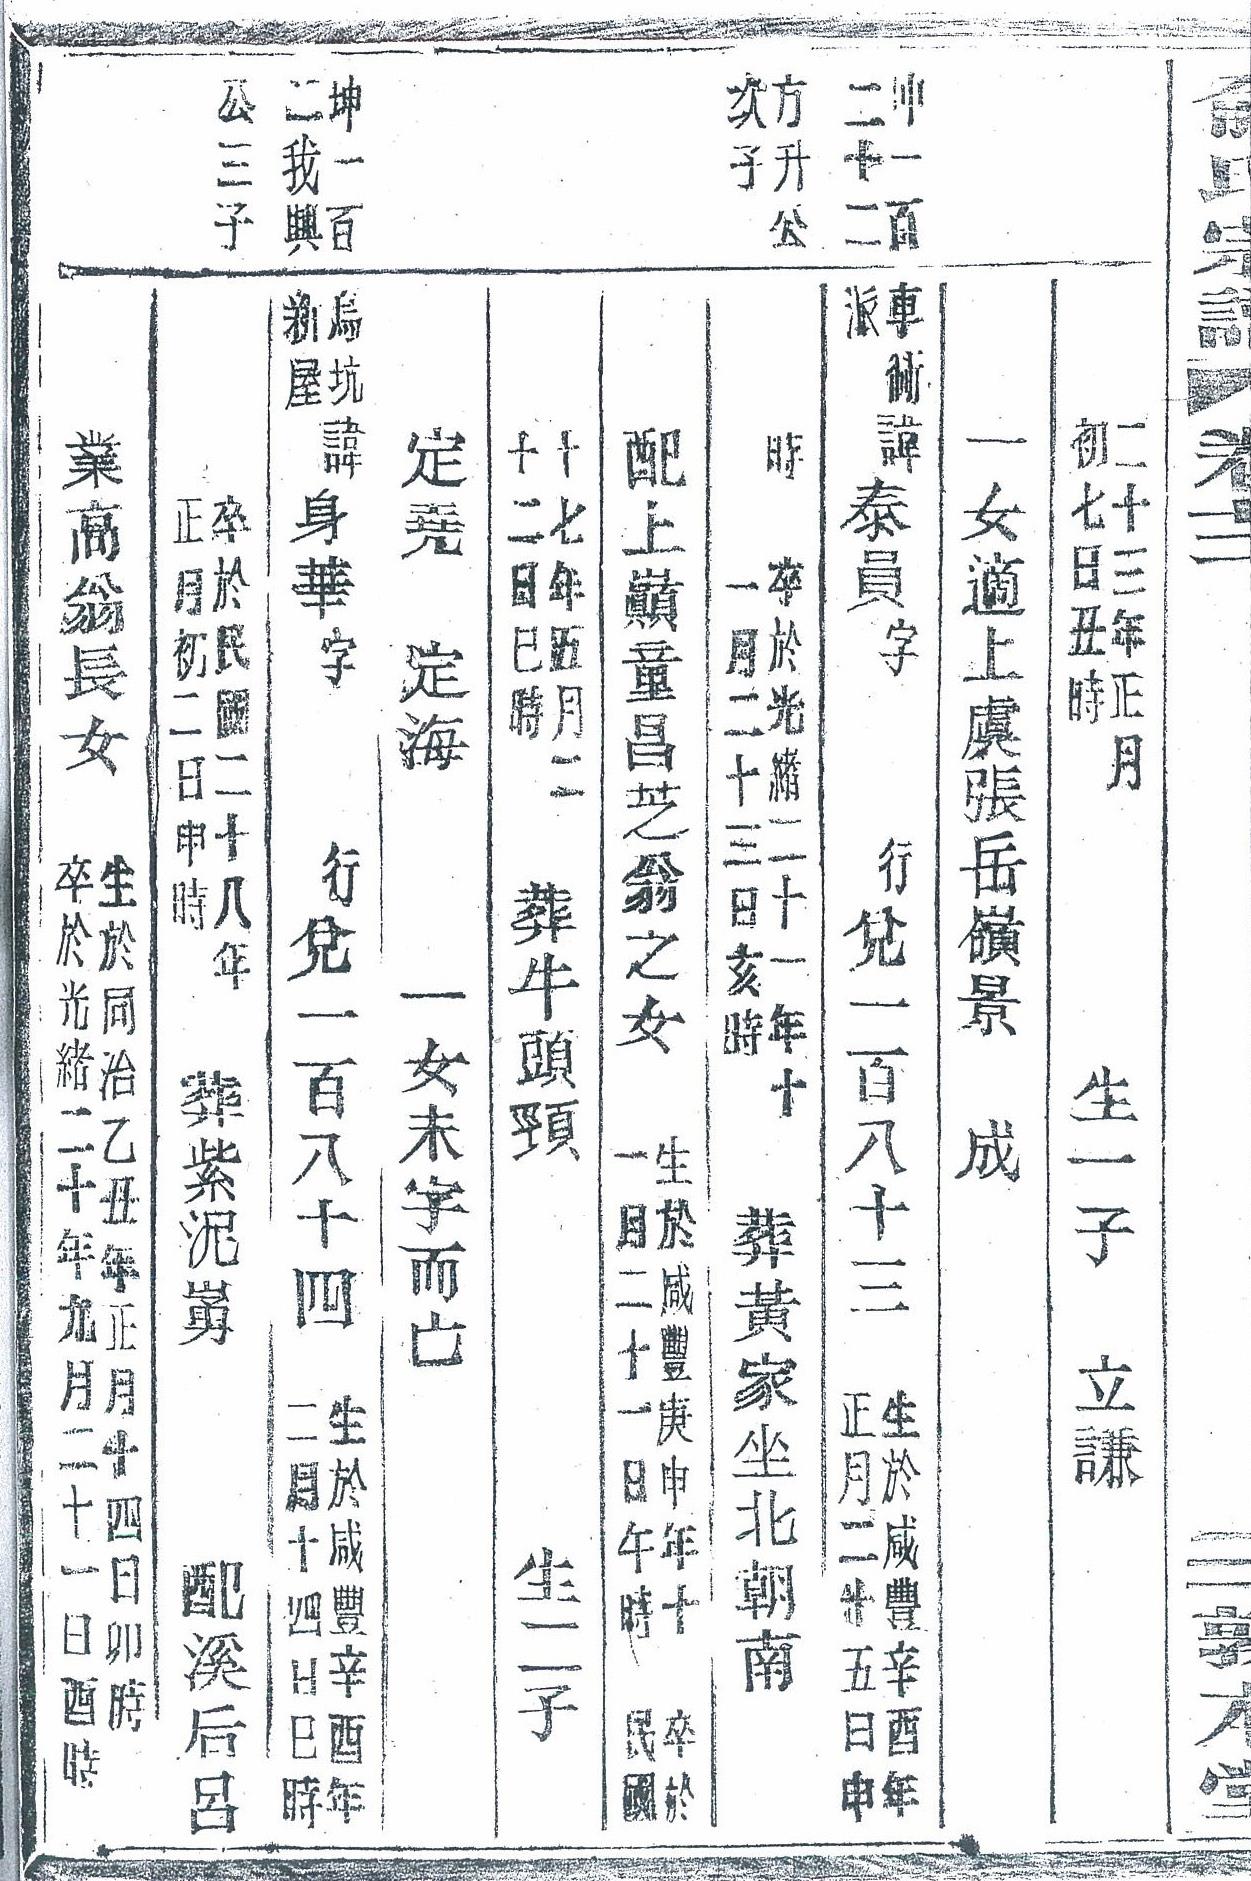 氏宗譜
卷二
三
敦本堂
二十三年正月
初七日丑時
生一子
立謙
一女適上虞張岳嶺景
成
坤一百
二十二
方升公
次子
車衕
派
諱泰員字
行兌一百八十三
生於咸豐辛酉年
正月二十五日申
時
卒於光緒二十一年十
一月二十三日亥時
葬黃家坐北朝南
配上巔童昌芝翁之女
生於咸豐庚申年十
一月二十一日午時
卒於
民國
十七年五月二
十二日巳時
葬牛頭頸
生二子
定堯
定海
一女未字而亡
坤一百
二我興
公三子
烏坑
新屋
諱身華字
行兌一百八十四
生於咸豐辛酉年
二月十四日巳時
卒於民國二十八年
正月初二日申時
葬紫泥
配溪后呂
業高翁長女
生於同治乙丑年正月十四日卯時
卒於光緒二十年九月二十一日酉時